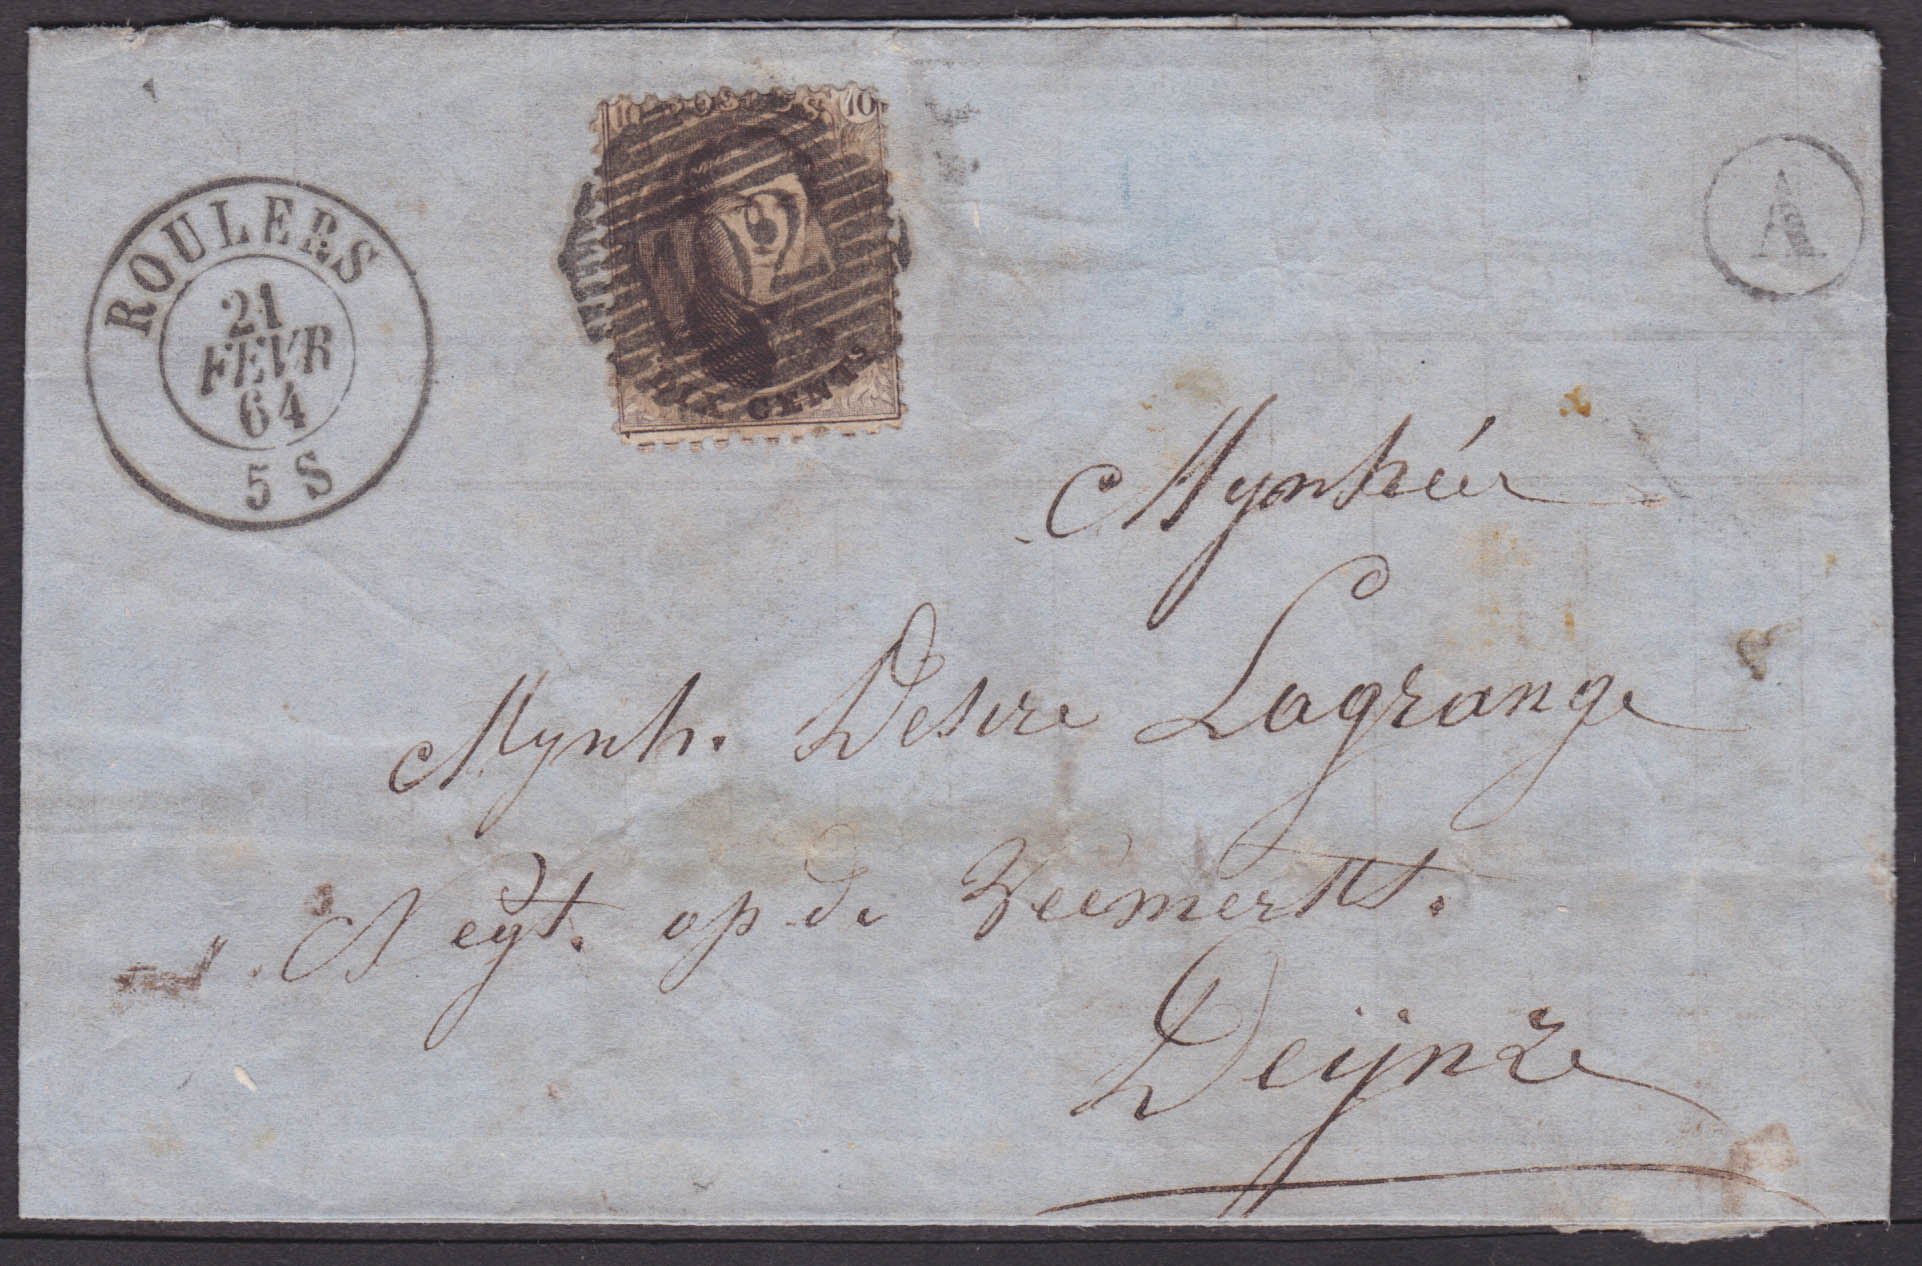 ROULERS
21
FEVR
64
5 S
10 POSTES 10
DIX CENTS
A
Mynhéer
Mynh. Desire Lagrange
Negt. op de Veémerkt.
Deÿnze